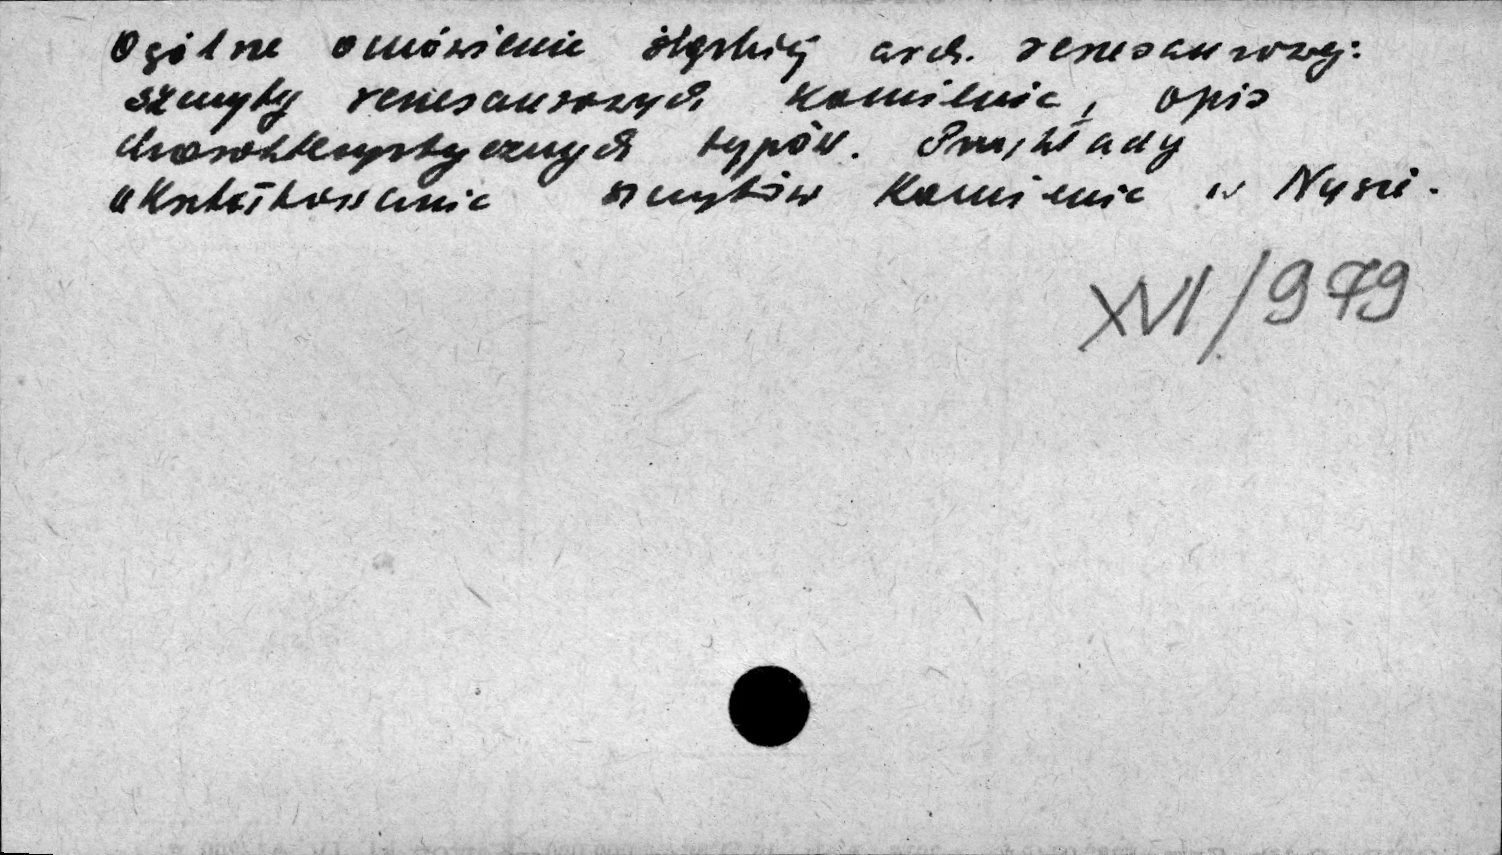 Ogólne omówienie śląskiej arch. renesansowej:
szczyty renesansowych kamienic, opis
charakterystycznych typów. Przykłady
ukształtowania szczytów kamienic w Nysie.
XVI/979